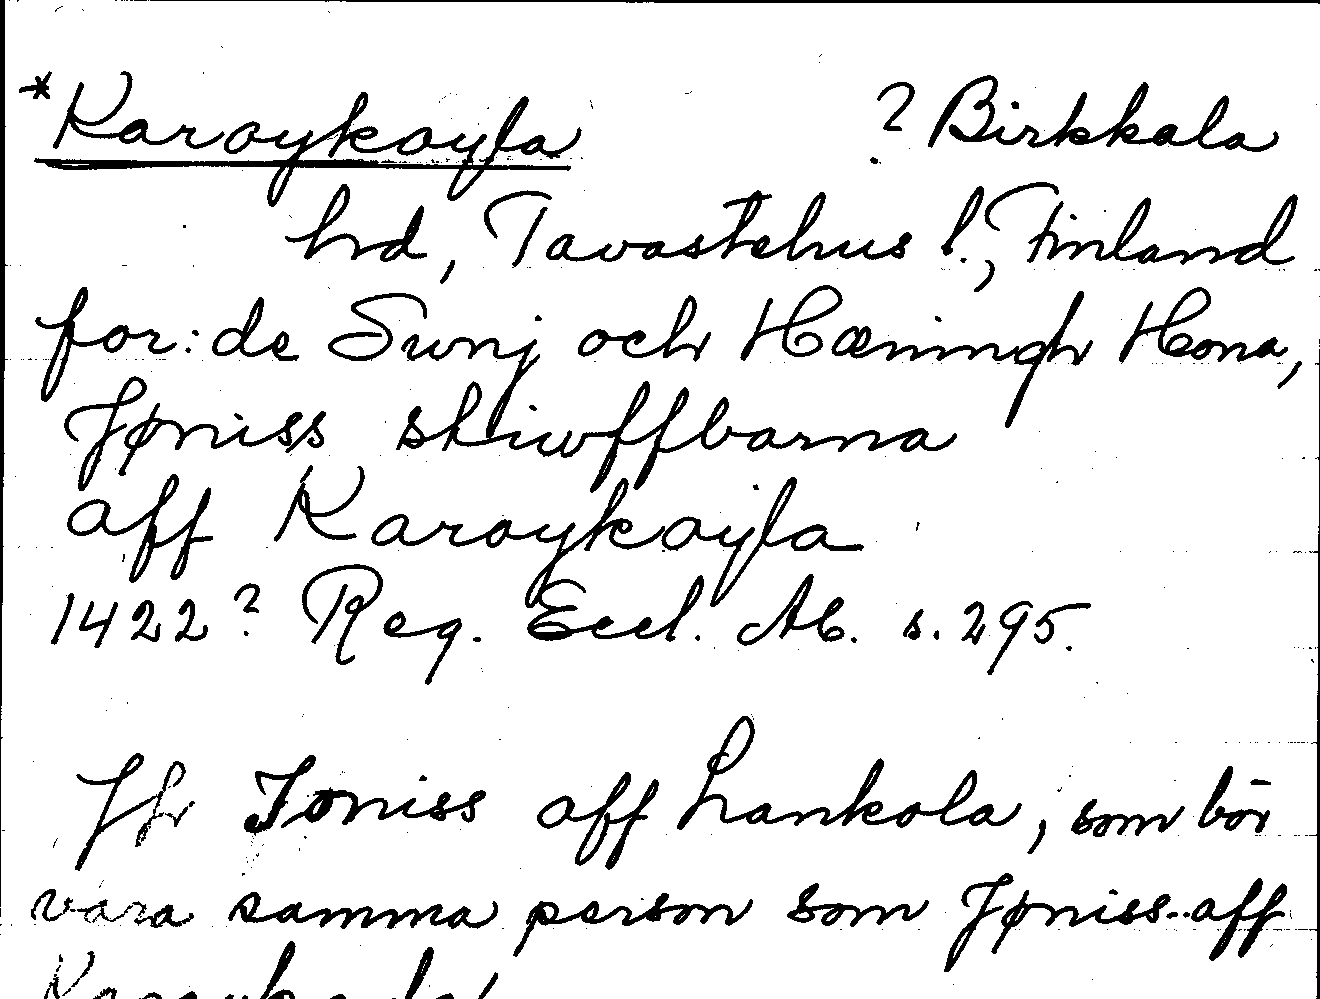 *Karoykoyla ? Birkkala
hrd, Tavastehus l., Finland
for: de Swnj och Hæningh Hona,
Jøniss skiwffbarna
aff Karoykoyla
1422? Reg. Eccl. Ab. s. 295.
Jfr Joniss aff Lankola, som bör
vara samma person som Jøniss aff